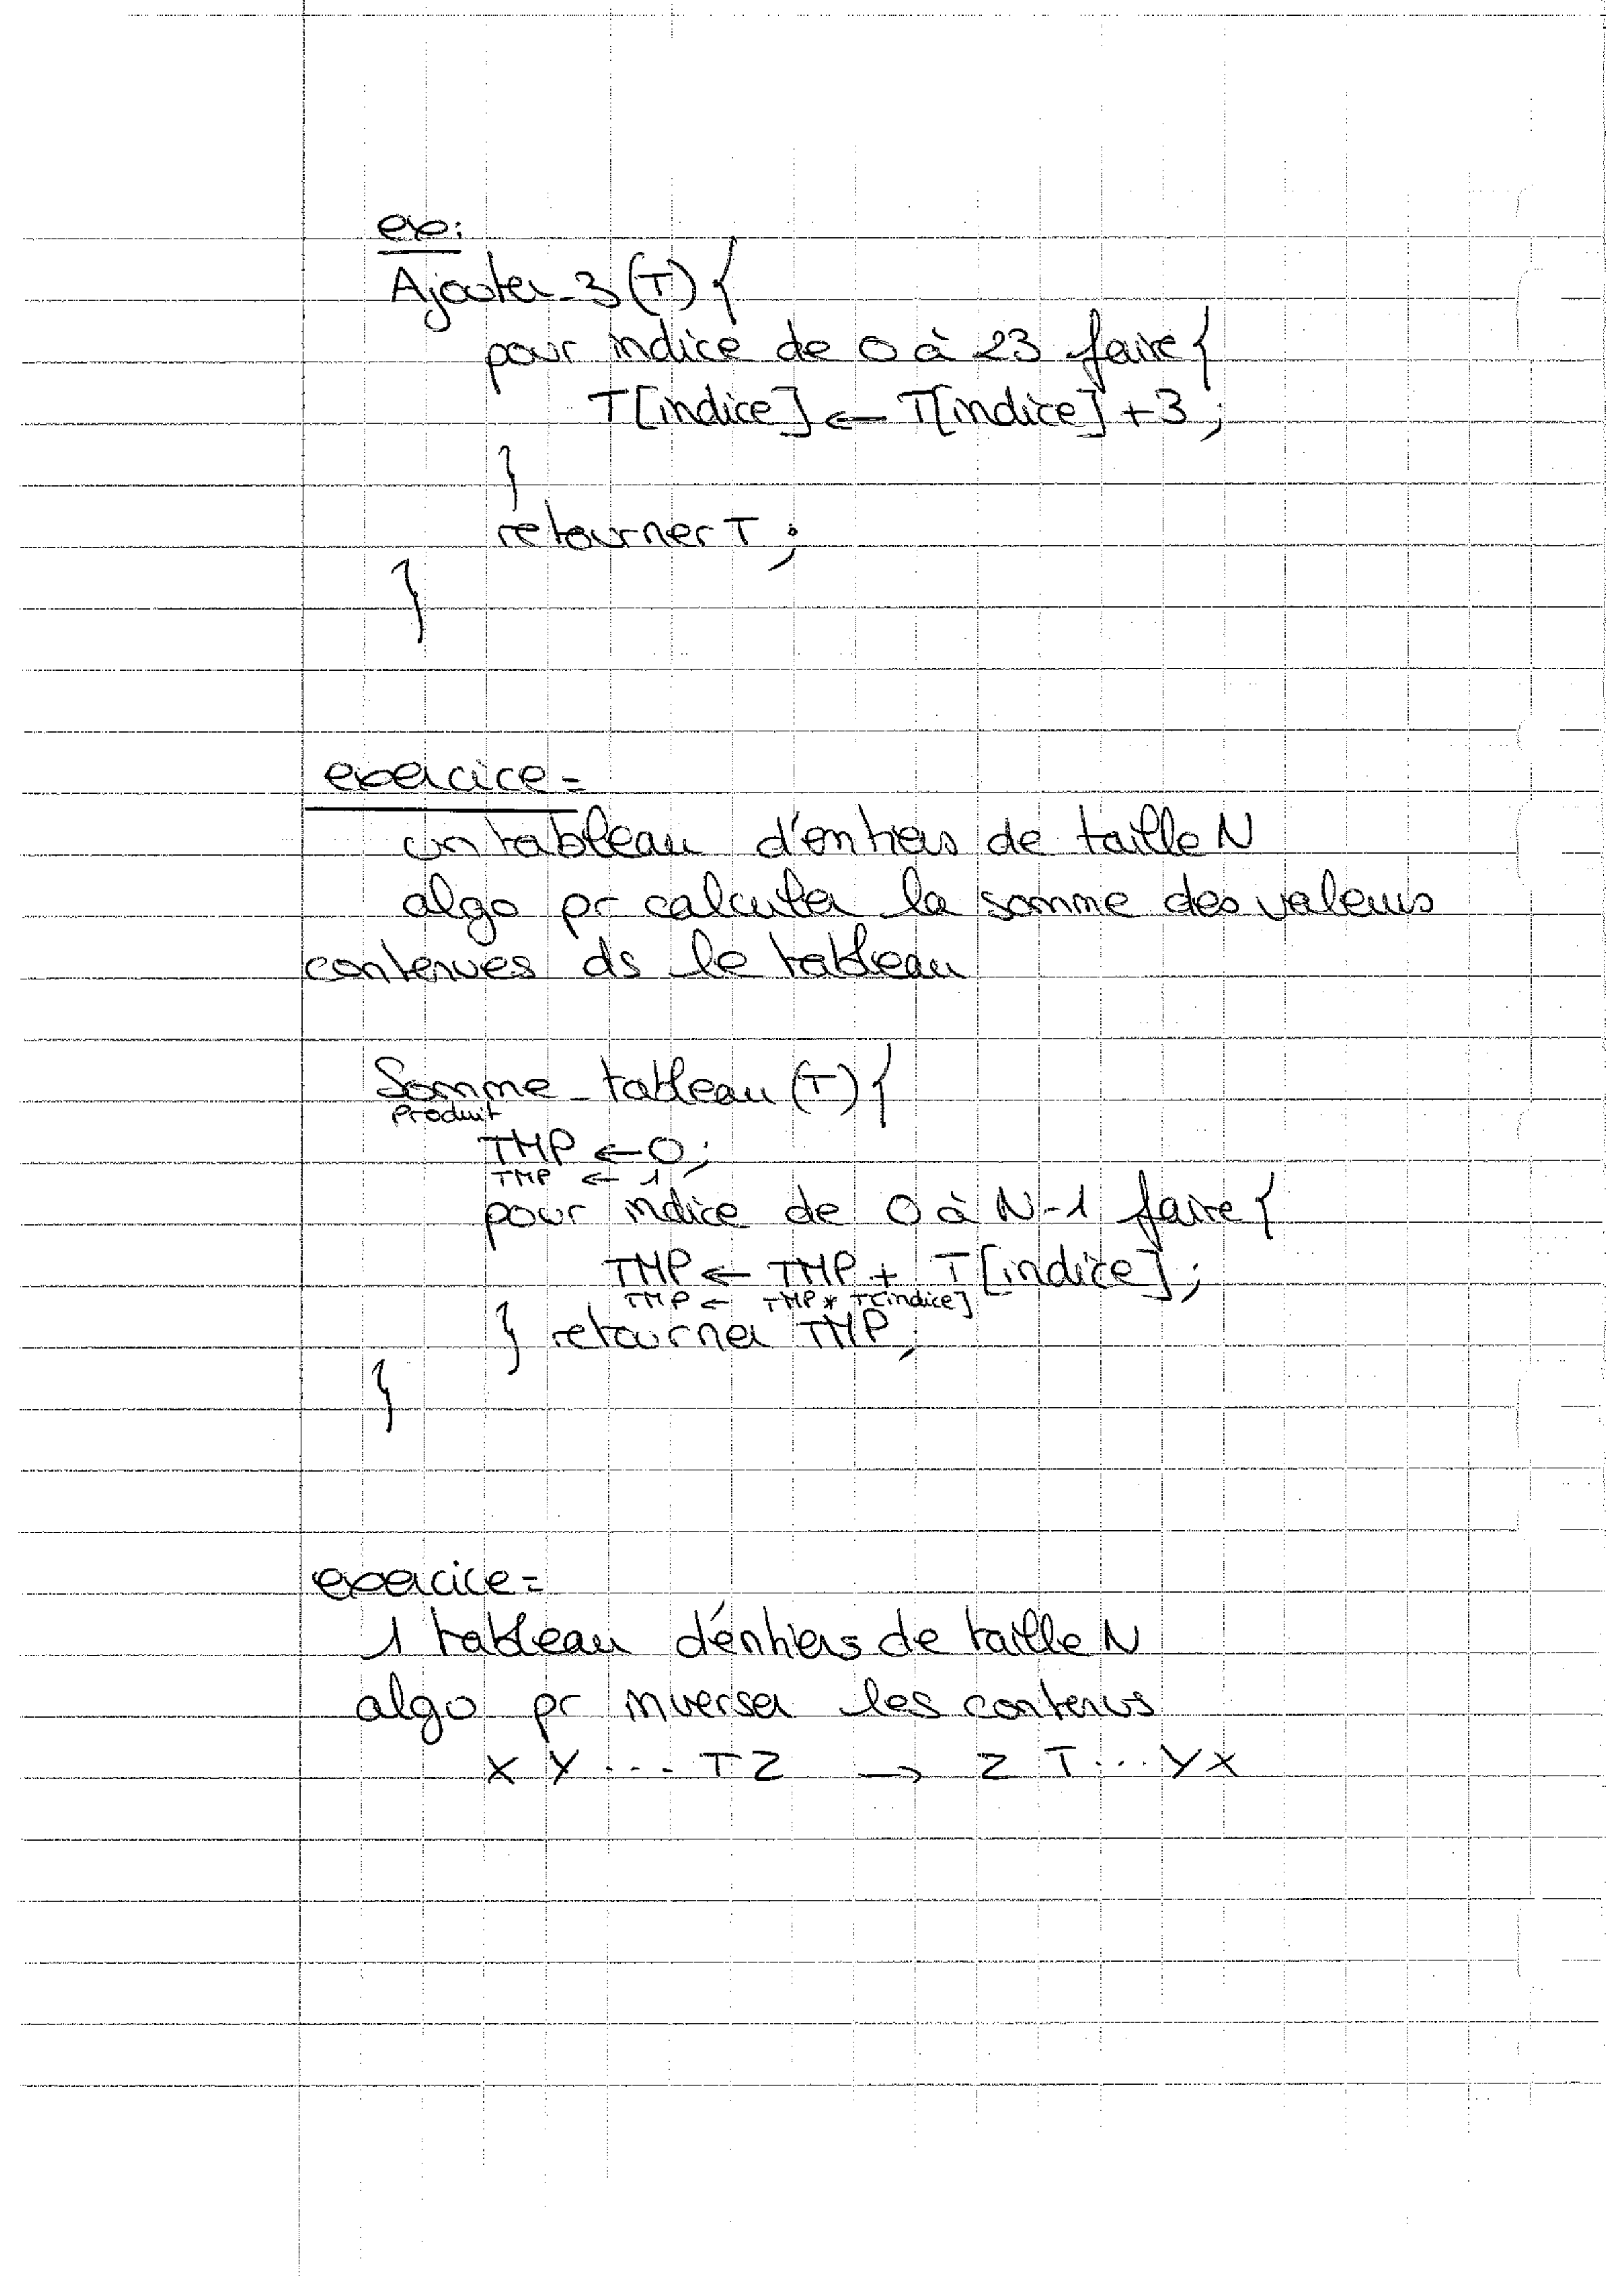 ex:
Ajouter_3(T){
pour indice de 0 à 23 faire{
T[indice] ← T[indice]+3;
}
retourner T;
}
exercice=
un tableau d'entiers de taille N
algo pr calculer la somme des valeurs
contenues ds le tableau
Somme_tableau(T){
Produit
TMP ← 0;
TMP ← 1
pour indice de 0 à N-1 faire{
TMP ← TMP + T[indice];
TMP ← TMP * T[indice]
} retourner TMP;
}
exercice=
1 tableau d'entiers de taille N
algo pr inverser les contenus
X Y ... T Z → Z T ... Y X